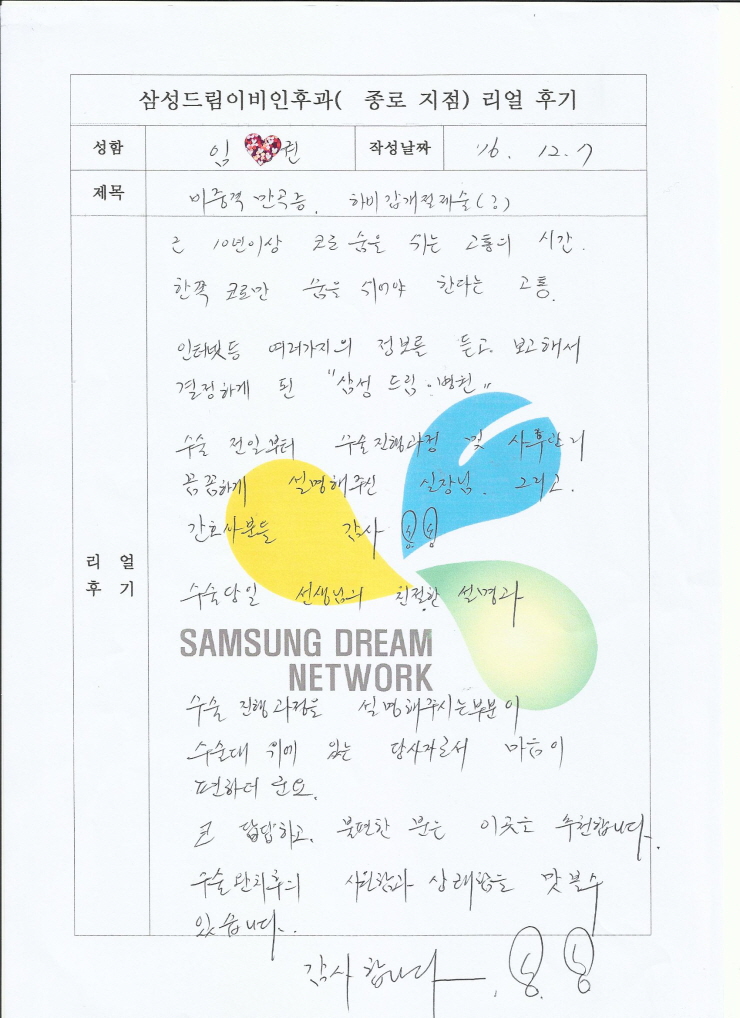 삼성드림이비인후과( 종로 지점) 리얼 후기
성함 임 권 작성날짜 '16. 12. 7
제목 비중격 만곡증. 하비갑개절제술(?)
근 10년이상 코로 숨을 쉬는 고통의 시간.
한쪽 코로만 숨을 쉬어야 한다는 고통.
인터넷등 여러가지의 정보를 듣고. 보고해서
결정하게 된 "삼성 드림.병원"
수술 전일부터 수술진행과정 및 사후관리
꼼꼼하게 설명해주신 실장님. 그리고.
리 얼
후 기
간호사분들 감사
수술당일 선생님의 친절한 설명과
SAMSUNG DREAM
NETWORK
수술 진행과정을 설명해주시는부분이
수술대 위에 있는 당사자로서 마음이
편하더군요.
코 답답하고. 불편한 분은 이곳을 추천합니다.
수술완치후의 시원함과 상쾌함을 맛볼수
있습니다..
감사합니다